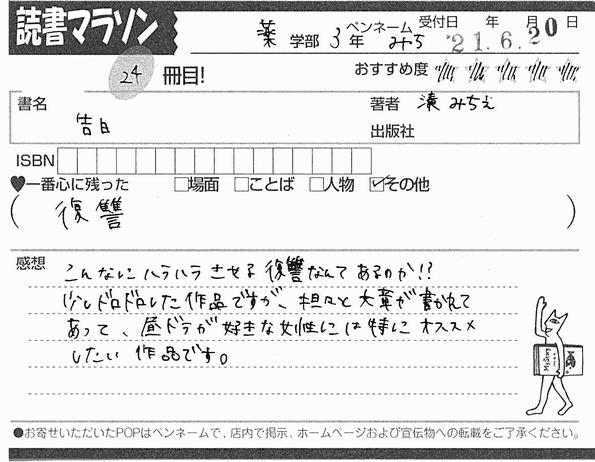 読書マラソン
薬 学部 3年 ペンネーム みち 受付日 年 月 日 '21.6.20
24 冊目!
おすすめ度
書名 告白
著者 湊 みちえ
出版社
ISBN
♥一番心に残った □場面 □ことば □人物 ☑その他
( 復讐 )
感想
こんなにハラハラさせる復讐なんてあるのか!?
少しドロドロした作品ですが、坦々と文章が書かれて
あって、昼ドラが好きな女性には特にオススメ
したい作品です。
●お寄せいただいたPOPはペンネームで、店内で掲示、ホームページおよび宣伝物への転載をご了承ください。